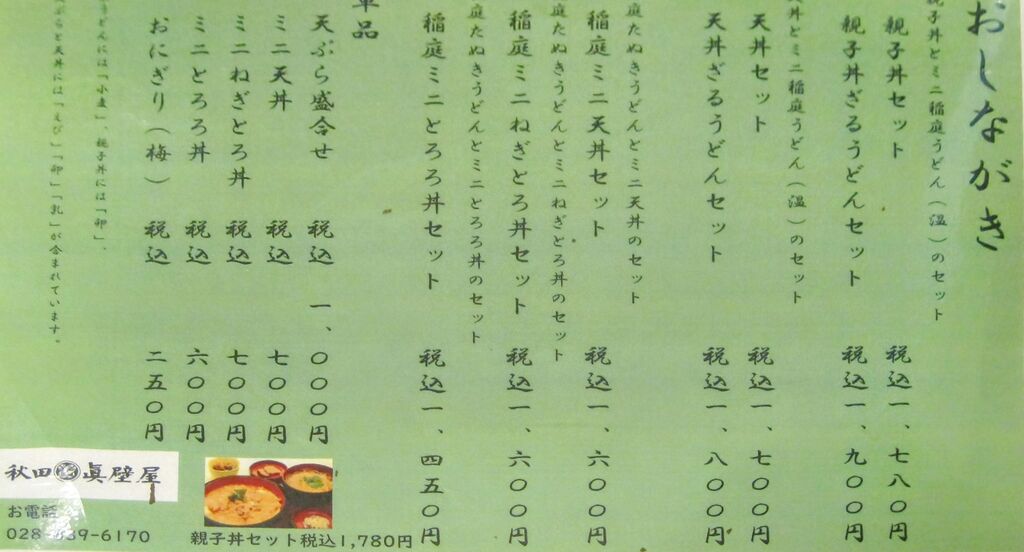 おしながき
親子丼とミニ稲庭うどん（温）のセット
親子丼セット 税込一、七八〇円
親子丼ざるうどんセット 税込一、九〇〇円
天丼とミニ稲庭うどん（温）のセット
天丼セット 税込一、七〇〇円
天丼ざるうどんセット 税込一、八〇〇円
庭たぬきうどんとミニ天丼のセット
稲庭ミニ天丼セット 税込一、六〇〇円
庭たぬきうどんとミニねぎとろ丼のセット
稲庭ミニねぎとろ丼セット 税込一、六〇〇円
庭たぬきうどんとミニとろろ丼のセット
稲庭ミニとろろ丼セット 税込一、四五〇円
単品
天ぷら盛合せ 税込 一、〇〇〇円
ミニ天丼 税込 七〇〇円
ミニねぎとろ丼 税込 七〇〇円
ミニとろろ丼 税込 六〇〇円
おにぎり（梅） 税込 二五〇円
うどんには「小麦」、親子丼には「卵」、
と天丼には「えび」「卵」「乳」が含まれています。
秋田 眞壁屋
お電話
親子丼セット税込1,780円